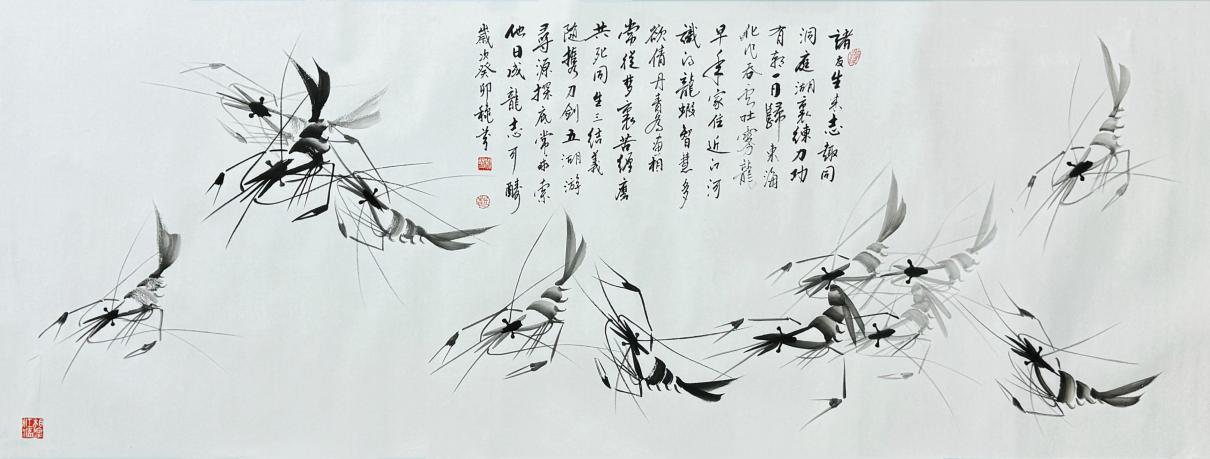 諸友生来志趣同
洞庭湖裏練刀功
有朝一日歸東海
化作吞雲吐雾龍
早年家住近江河
識得龍蝦智慧多
欲倩丹青為寫相
常從梦裏苦纏磨
共死同生三结義
随攜刀劍五湖游
尋源探底常求索
他日成龍志可酬
歲次癸卯